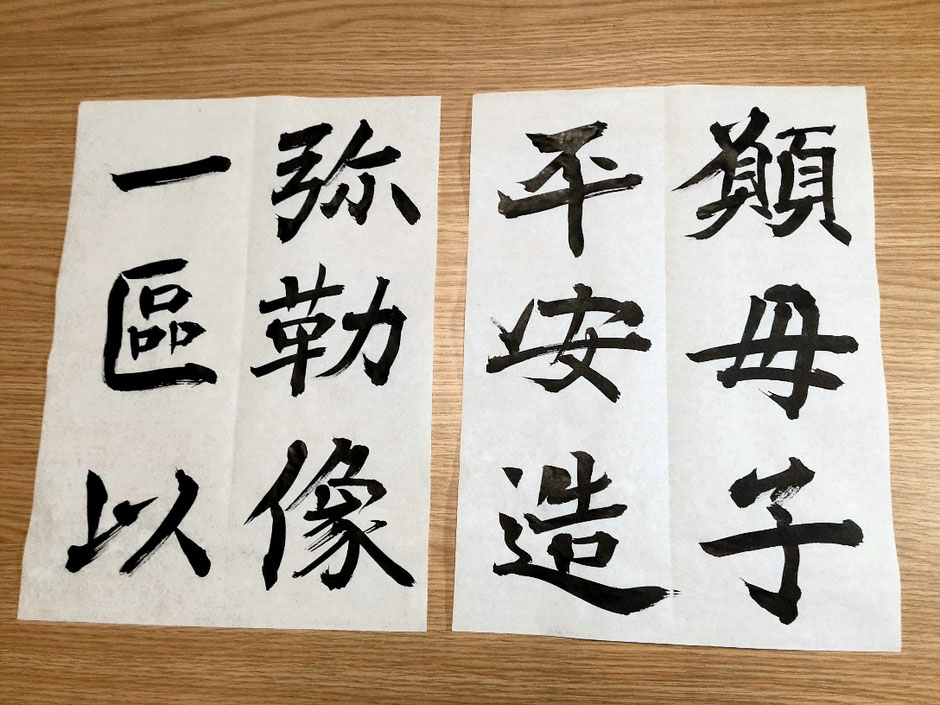 願母子
平安造
弥勒像
一區以